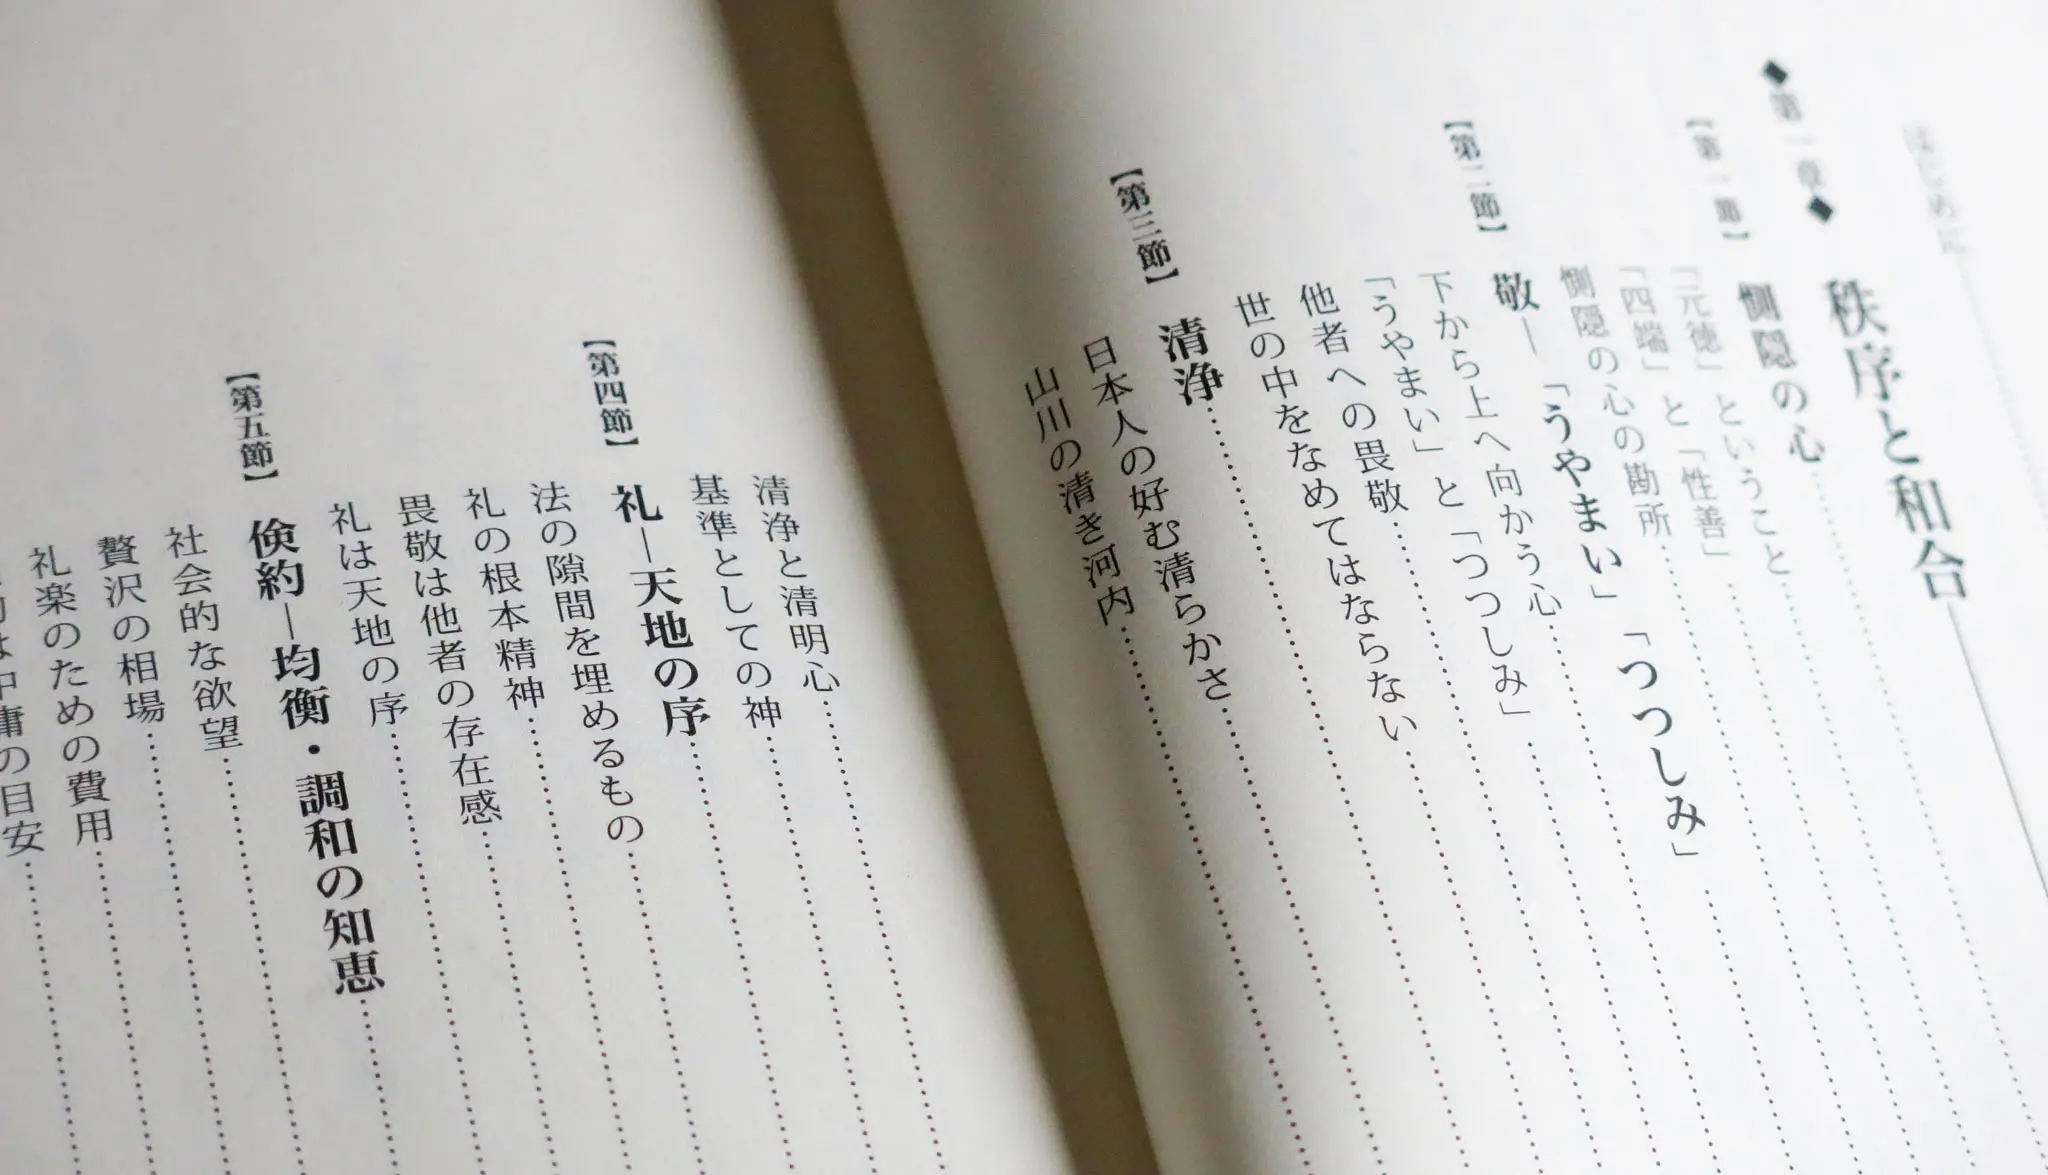 はじめに
◆第一章◆ 秩序と和合
【第一節】 惻隠の心
「元徳」ということ
「四端」と「性善」
惻隠の心の勘所
【第二節】 敬―「うやまい」「つつしみ」
下から上へ向かう心
「うやまい」と「つつしみ」
他者への畏敬
世の中をなめてはならない
【第三節】 清浄
日本人の好む清らかさ
山川の清き河内
清浄と清明心
基準としての神
【第四節】 礼―天地の序
法の隙間を埋めるもの
礼の根本精神
畏敬は他者の存在感
礼は天地の序
【第五節】 倹約―均衡・調和の知恵
社会的な欲望
贅沢の相場
礼楽のための費用
は中庸の目安